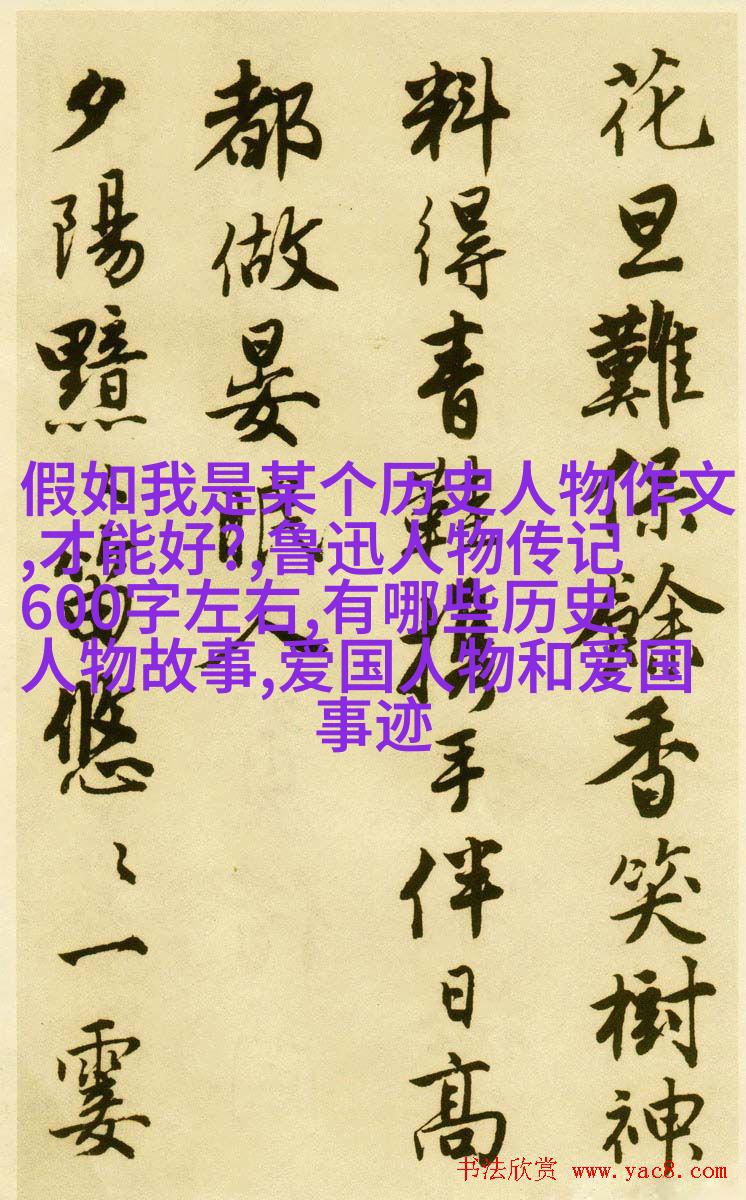 花旦難保餘香笑樹神
料得青鞋攜手伴日高
都做晏眠人
夕陽黯〻笛悠〻一霎
假如我是某个历史人物作文
,才能好?,鲁迅人物传记
600字左右,有哪些历史
人物故事,爱国人物和爱国
事迹
书法欣赏 www.yac8.com